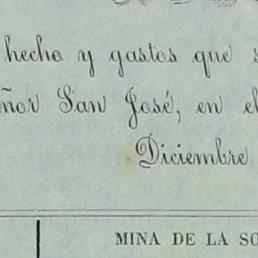 hecho y gastos que
ñor San José, en el
Diciembre
MINA DE LA SO